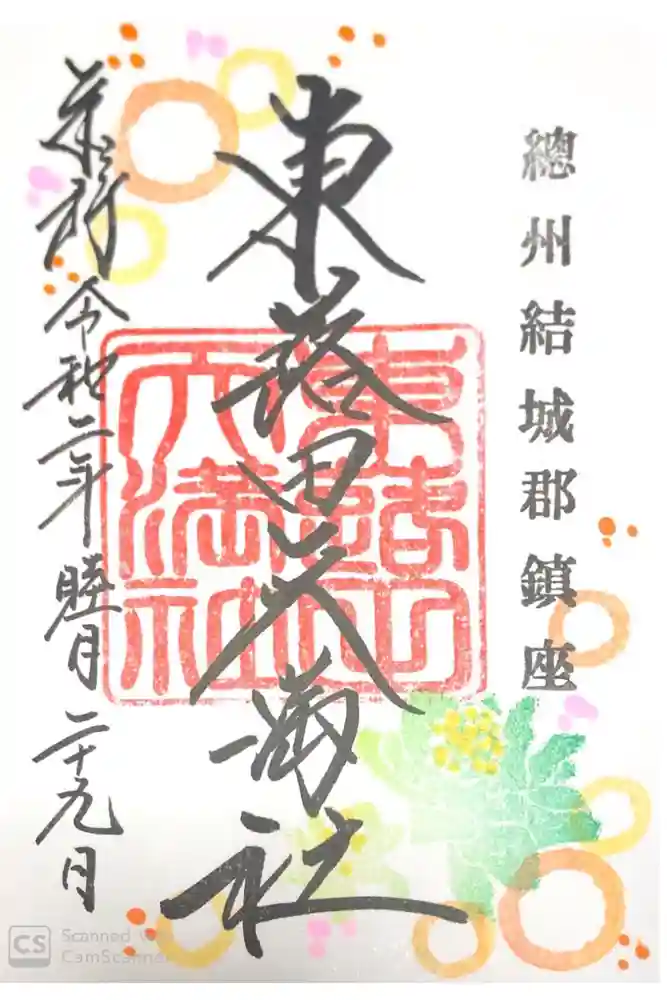 總州結城郡鎮座
東蕗田天満社
東蕗田
天満社
恭拝 令和二年 睦月 二十九日
CS
Scanned with
CamScanner